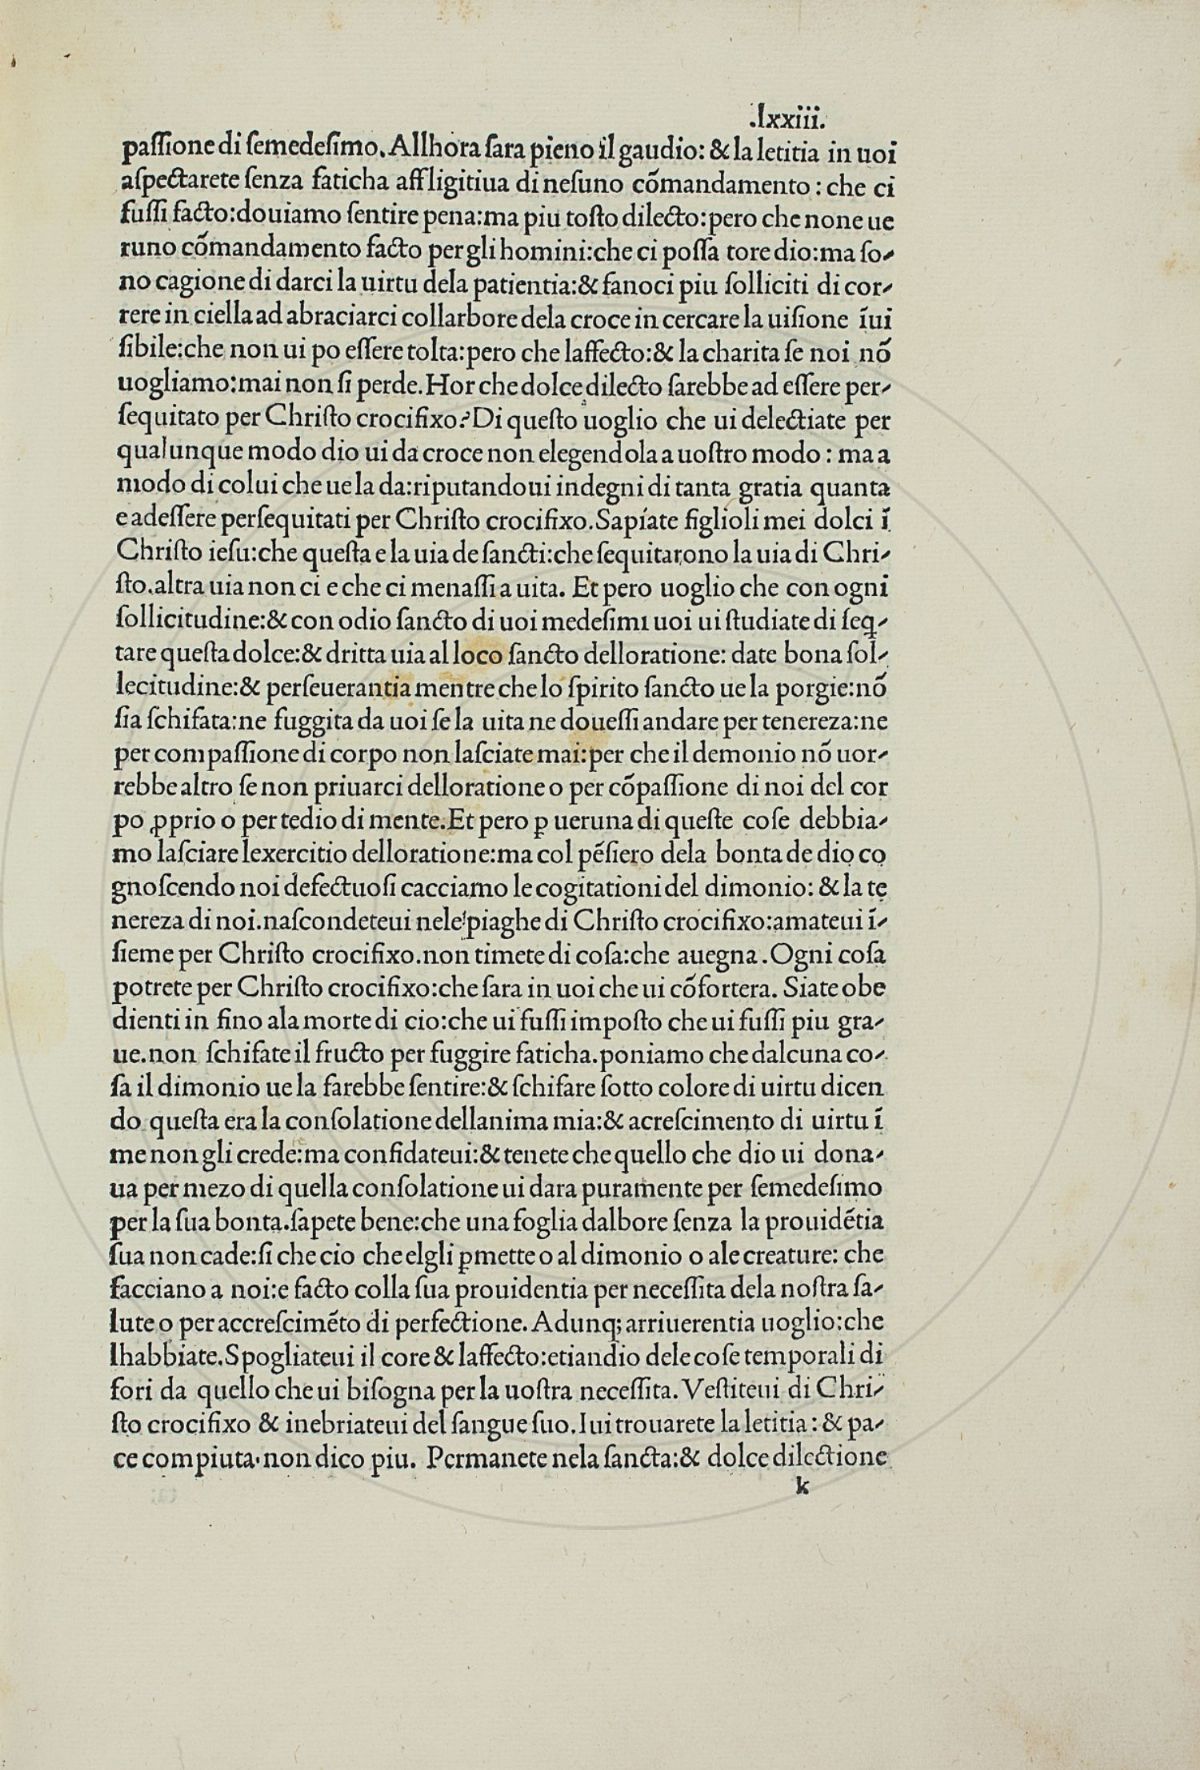 .lxxiii.
paſſione di ſemedeſimo. Allhora ſara pieno il gaudio: & la letitia in uoi
aſpectarete ſenza faticha affligitiua di neſuno cōmandamento : che ci
fuſſi facto:douiamo ſentire pena:ma piu toſto dilecto:pero che none ue
runo cōmandamento facto per gli homini:che ci poſſa tore dio:ma ſo-
no cagione di darci la uirtu dela patientia:& fanoci piu ſolliciti di cor-
rere in ciella ad abraciarci collarbore dela croce in cercare la uiſione īui
ſibile:che non ui po eſſere tolta:pero che laffecto:& la charita ſe noi nō
uogliamo:mai non ſi perde. Hor che dolce dilecto ſarebbe ad eſſere per-
ſequitato per Chriſto crocifixo? Di queſto uoglio che ui delectiate per
qualunque modo dio ui da croce non elegendola a uoſtro modo : ma a
modo di colui che ue la da:riputandoui indegni di tanta gratia quanta
e adeſſere perſequitati per Chriſto crocifixo. Sapiate figlioli mei dolci ī
Chriſto ieſu:che queſta e la uia de ſancti:che ſequitarono la uia di Chri-
ſto.altra uia non ci e che ci menaſſi a uita. Et pero uoglio che con ogni
ſollicitudine:& con odio ſancto di uoi medeſimi uoi ui ſtudiate di ſeq-
tare queſta dolce:& dritta uia al loco ſancto delloratione: date bona ſol-
lecitudine:& perſeuerantia mentre che lo ſpirito ſancto ue la porgie:nō
ſia ſchifata:ne fuggita da uoi ſe la uita ne doueſſi andare per tenereza:ne
per compaſſione di corpo non laſciate mai:per che il demonio nō uor-
rebbe altro ſe non priuarci delloratione o per cōpaſſione di noi del cor
po ꝓprio o per tedio di mente. Et pero ꝑ ueruna di queſte coſe debbia-
mo laſciare lexercitio delloratione:ma col pēſiero dela bonta de dio co
gnoſcendo noi defectuoſi cacciamo le cogitationi del dimonio: & la te
nereza di noi.naſcondeteui nele piaghe di Chriſto crocifixo:amateui ī-
ſieme per Chriſto crocifixo.non timete di coſa:che auegna . Ogni coſa
potrete per Chriſto crocifixo:che ſara in uoi che ui cōfortera. Siate obe
dienti in fino ala morte di cio:che ui fuſſi impoſto che ui fuſſi piu gra-
ue.non ſchifate il fructo per fuggire faticha.poniamo che dalcuna co-
ſa il dimonio ue la farebbe ſentire:& ſchifare ſotto colore di uirtu dicen
do queſta era la conſolatione dellanima mia:& acreſcimento di uirtu ī
me non gli crede:ma confidateui:& tenete che quello che dio ui dona-
ua per mezo di quella conſolatione ui dara puramente per ſemedeſimo
per la ſua bonta.ſapete bene:che una foglia dalbore ſenza la prouidētia
ſua non cade:ſi che cio che elgli ꝑmette o al dimonio o ale creature: che
facciano a noi:e facto colla ſua prouidentia per neceſſita dela noſtra ſa-
lute o per accreſcimēto di perfectione. Adunq; arriuerentia uoglio:che
lhabbiate. Spogliateui il core & laffecto:etiandio dele coſe temporali di
fori da quello che ui biſogna per la uoſtra neceſſita. Veſtiteui di Chri-
ſto crocifixo & inebriateui del ſangue ſuo. Iui trouarete la letitia : & pa-
ce compiuta·non dico piu. Permanete nela ſancta:& dolce dilectione
k